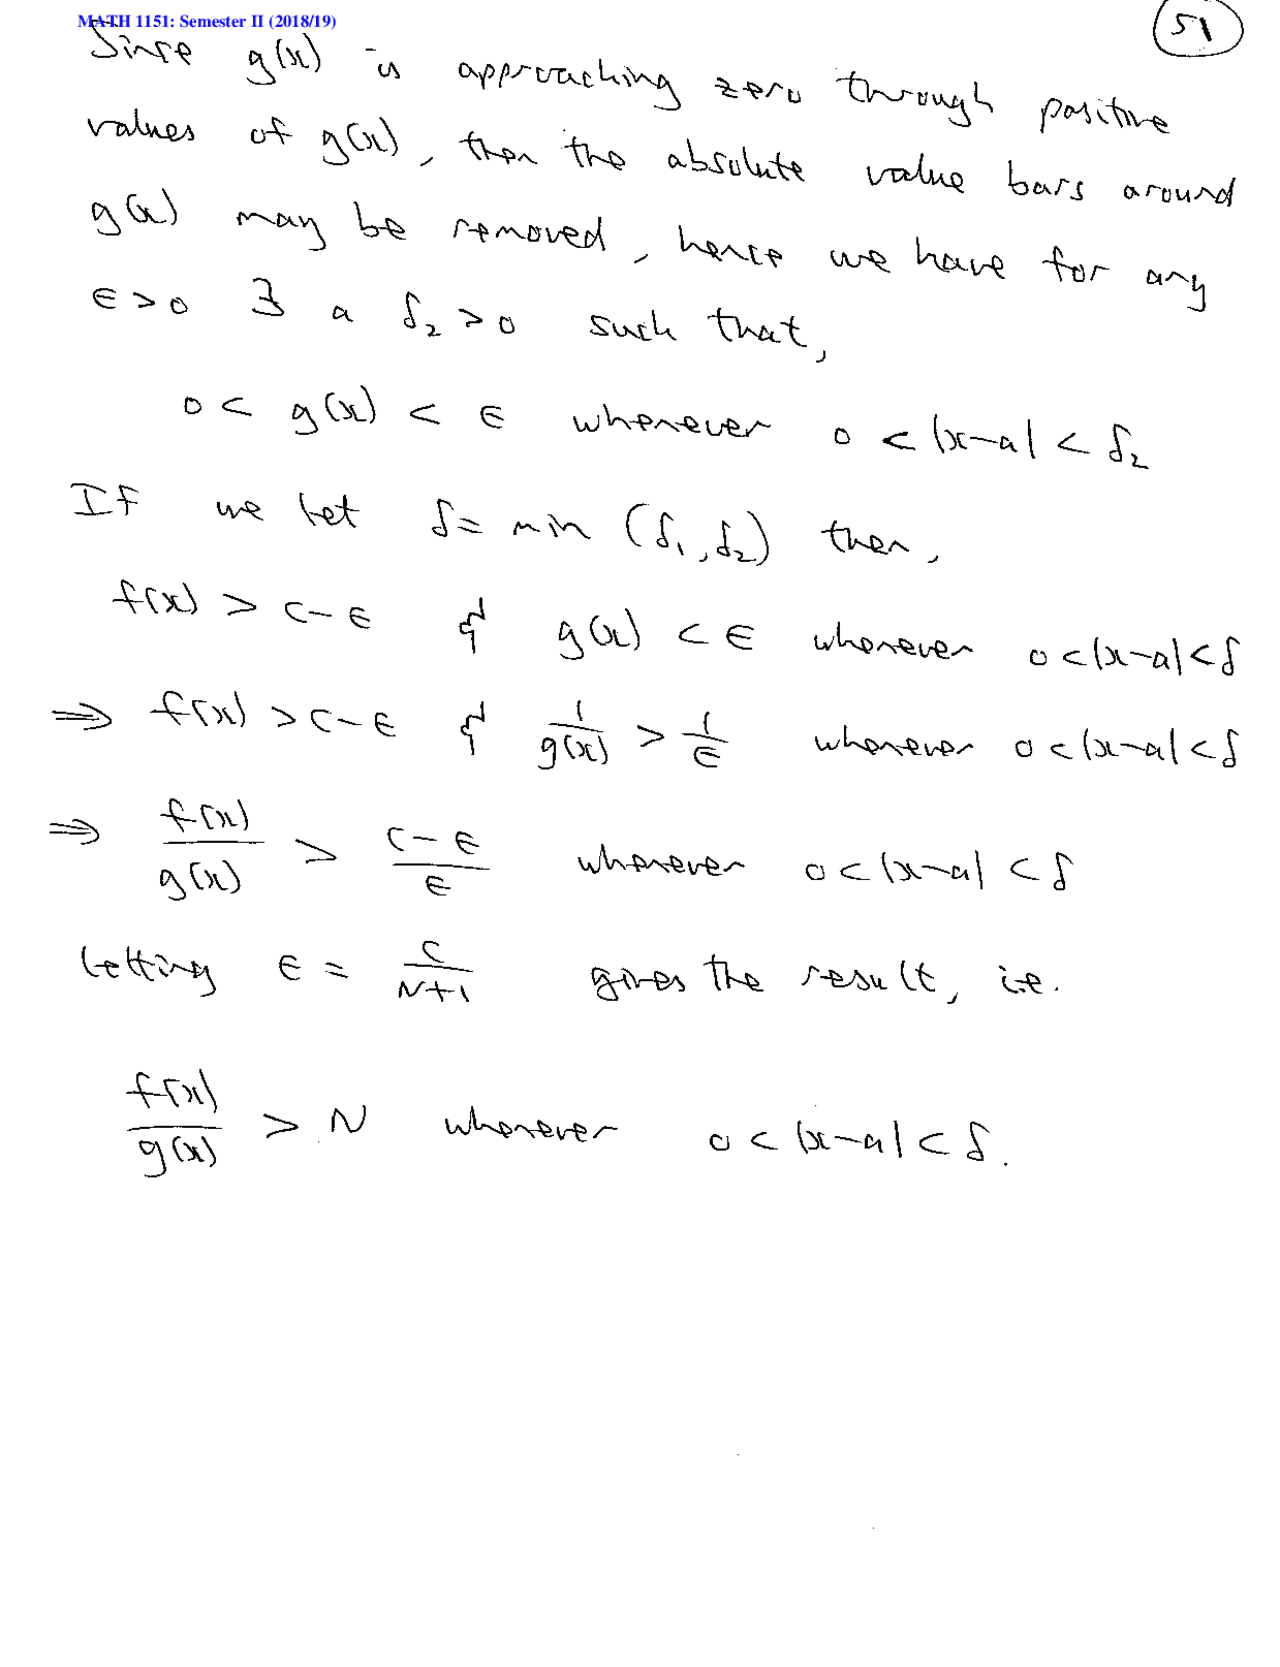 MATH 1151: Semester II (2018/19)
51
Since g(x) is approaching zero through positive
values of g(x), then the absolute value bars around
g(x) may be removed, hence we have for any
ϵ>0 ∃ a δ₂>0 such that,
0 < g(x) < ϵ whenever 0 < |x-a| < δ₂
If we let δ = min (δ₁, δ₂) then,
f(x) > c-ϵ & g(x) < ϵ whenever 0<|x-a|<δ
⇒ f(x) > c-ϵ & 1/g(x) > 1/ϵ whenever 0<|x-a|<δ
⇒ f(x)/g(x) > (c-ϵ)/ϵ whenever 0<|x-a|<δ
Letting ϵ = c/(N+1) gives the result, i.e.
f(x)/g(x) > N whenever 0<|x-a|<δ.